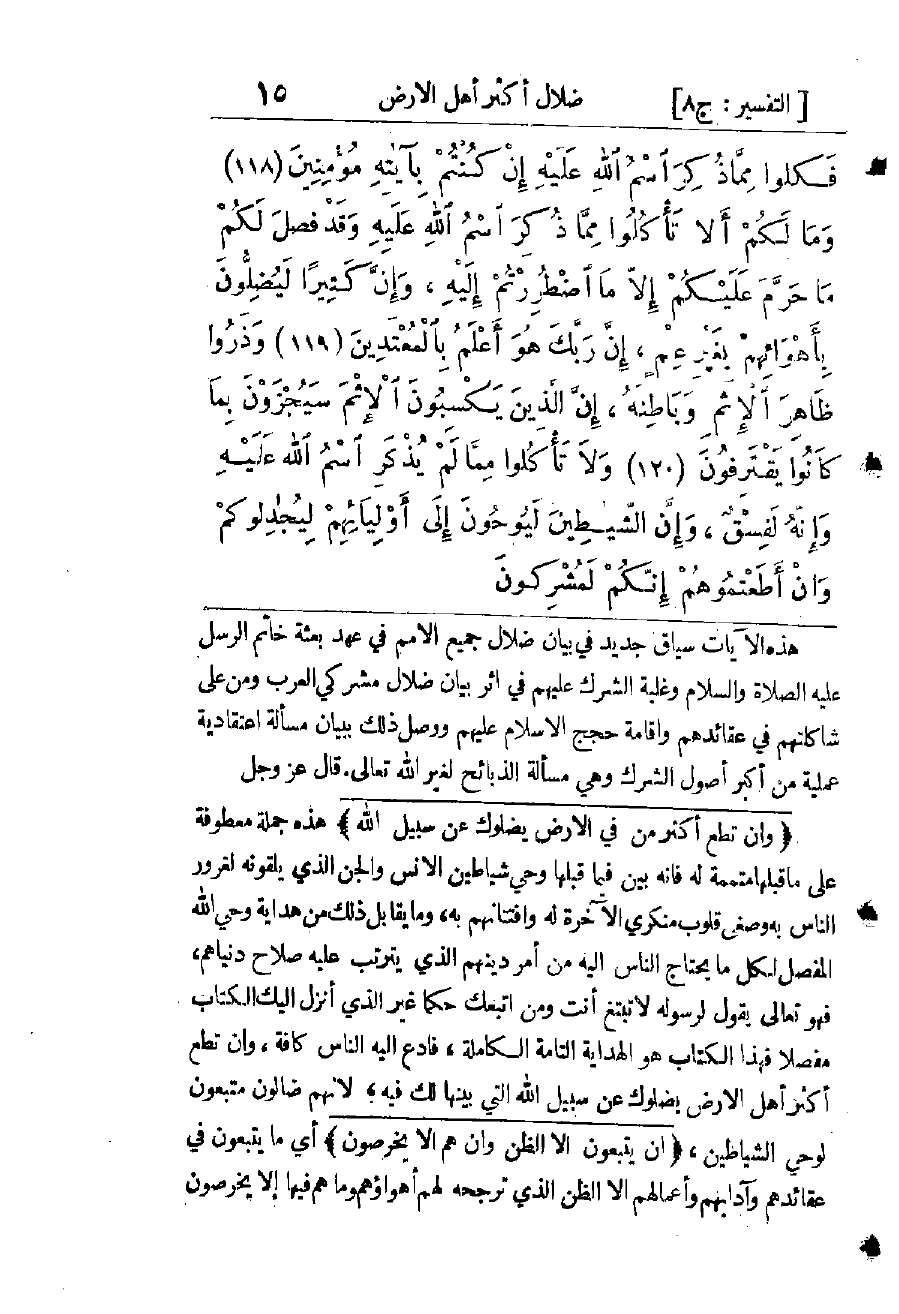 [ التفسير : ج٨] ضلال أكثر أهل الارض ١٥
فَكلوا مِمَّا ذُكِرَ ٱسْمُ ٱللهِ عَلَيْهِ إِنْ كُنْتُمْ بِآيٰتِهِ مُؤْمِنِينَ (١١٨)
وَمَا لَكُمْ أَلا تَأْكُلُوا مِمَّا ذُكِرَ ٱسْمُ ٱللهِ عَلَيهِ وَقَدْ فصلَ لَكُمْ
مَا حَرَّمَ عَلَيْكُمْ إِلاّ مَا ٱضْطُرِرْتُمْ إِلَيْهِ ، وَإِنَّ كَثِيرًا لَيُضِلُّونَ
بِأَهْوَائِهِمْ بِغَيْرِ عِلْمٍ ، إِنَّ رَبَّكَ هُوَ أَعْلَمُ بِٱلْمُعْتَدِينَ (١١٩) وَذَرُوا
ظَاهِرَ ٱلْإِثْمِ وَبَاطِنَهُ ، إِنَّ الَّذِينَ يَكْسِبُونَ ٱلْإِثْمَ سَيُجْزَوْنَ بِمَا
كَانُوا يَقْتَرِفُونَ (١٢٠) وَلاَ تَأْكُلوا مِمَّا لَمْ يُذْكَرِ ٱسْمُ الله عَلَيْهِ
وَإِنَّهُ لَفِسْقٌ ، وَإِنَّ الشَّيٰطِينَ لَيُوحُونَ إِلَى أَوْلِيَائِهِمْ لِيُجٰدِلوكمْ
وَانْ أَطَعْتمُوهُمْ إِنَّكُمْ لَمُشْرِكونَ
هذه الآيات سياق جديد في بيان ضلال جميع الامم في عهد بعثة خاتم الرسل
عليه الصلاة والسلام وغلبة الشرك عليهم في اثر بيان ضلال مشركي العرب ومن على
شاكلتهم في عقائدهم واقامة حجج الاسلام عليهم ووصل ذلك ببيان مسألة اعتقادية
عملية من أكبر أصول الشرك وهي مسألة الذبائح لغير الله تعالى. قال عز وجل
﴿ وان تطع أكثر من في الارض يضلوك عن سبيل الله ﴾ هذه جملة معطوفة
على ما قبلها متممة له فانه بين فيما قبلها وحي شياطين الانس والجن الذي يلقونه لغرور
الناس به وصغى قلوب منكري الآخرة له وافتتانهم به، وما يقابل ذلك من هداية وحي الله
المفصل لكل ما يحتاج الناس اليه من أمر دينهم الذي يترتب عليه صلاح دنياهم،
فهو تعالى يقول لرسوله لا تبتغ أنت ومن اتبعك حكما غير الذي أنزل اليك الكتاب
مفصلا فهذا الكتاب هو الهداية التامة الكاملة ، فادع اليه الناس كافة ، وان تطع
أكثر أهل الارض يضلوك عن سبيل الله التي بينها لك فيه ؛ لانهم ضالون متبعون
لوحي الشياطين ، ﴿ ان يتبعون الا الظن وان هم الا يخرصون ﴾ أي ما يتبعون في
عقائدهم وآدابهم وأعمالهم الا الظن الذي ترجحه لهم أهواؤهم وما هم فيها إلا يخرصون